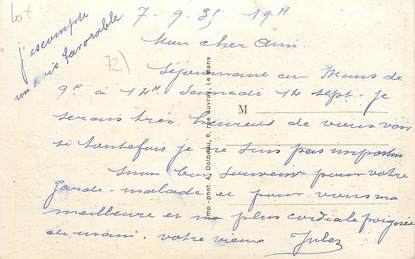 7-9-35 19H
j'escompte
un avis favorable
72)
Mon cher Ami.
Séjournant au Mans de
9H à 12H. Samedi 14 sept. je
M
serais très heureux de vous voir
si toutefois je ne suis pas importun
bon souvenir pour votre
garde-malade et pour vous ma
meilleure et ma plus cordiale poignée
de main. votre vieux Jules
Imp.-phot. J. Dolbeau, 6, rue Auvray, Le Mans